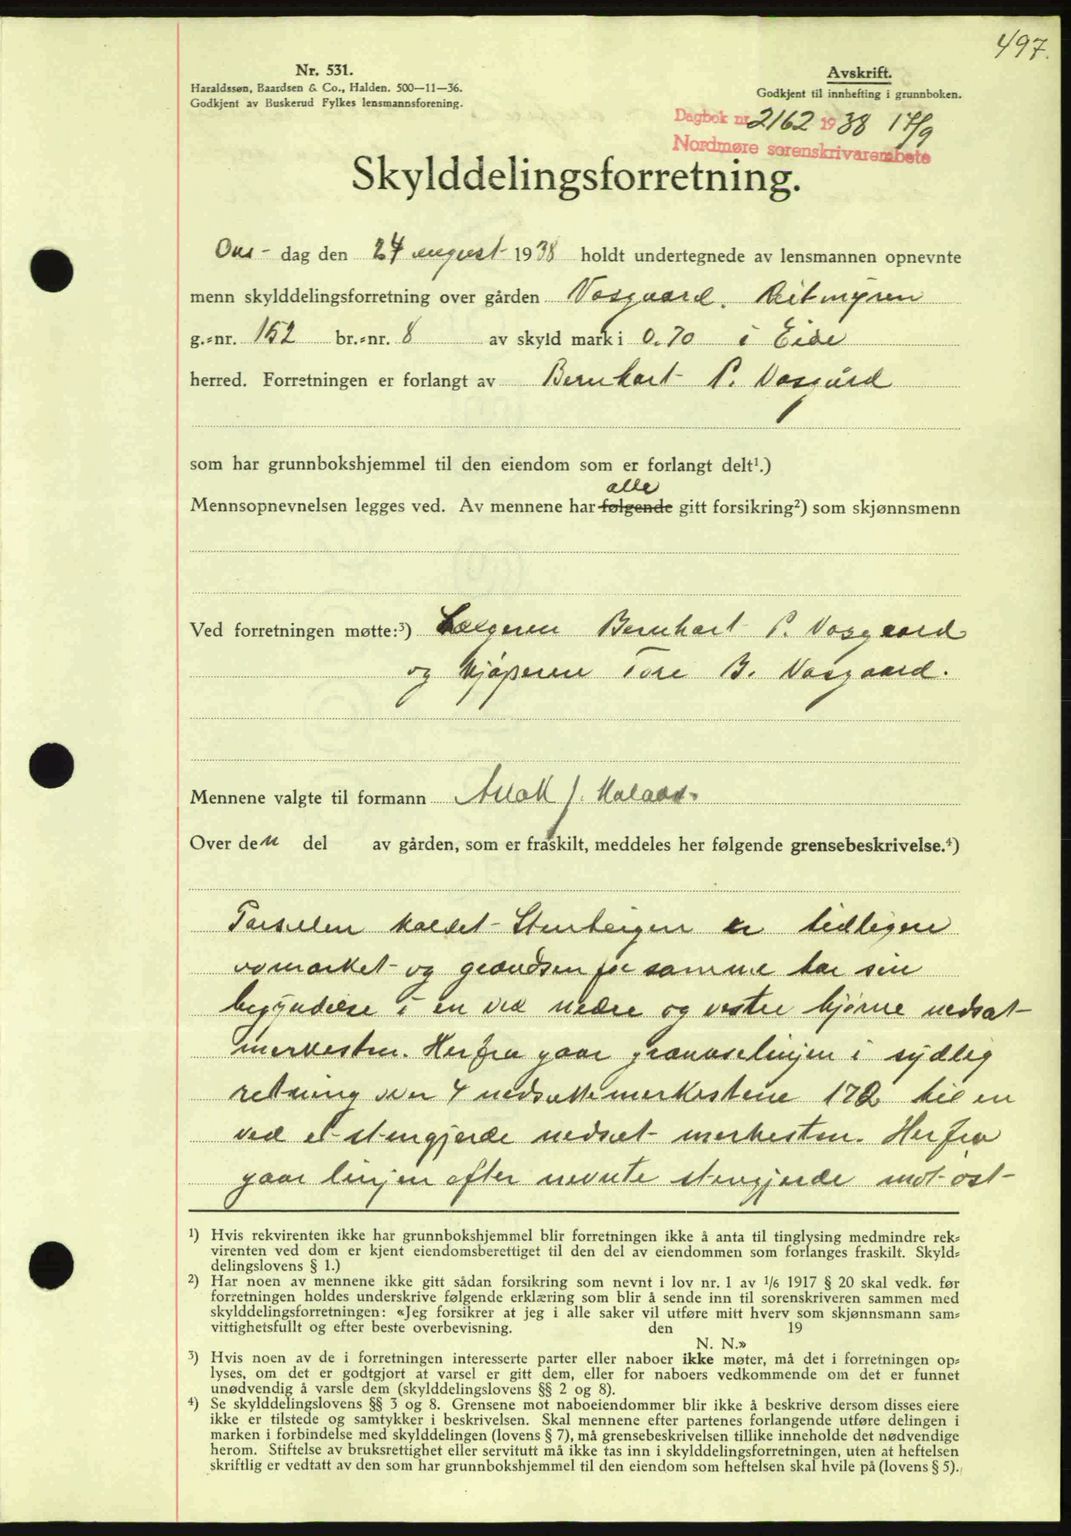 497.
Nr. 531.
Haraldssøn, Baardsen & Co., Halden. 500—11—36.
Godkjent av Buskerud Fylkes lensmannsforening.
Avskrift.
Godkjent til innhefting i grunnboken.
Dagbok nr. 2162 1938 17/9
Nordmøre sorenskrivarembete
Skylddelingsforretning.
Ons- dag den 24 august 1938 holdt undertegnede av lensmannen opnevnte
menn skylddelingsforretning over gården Vasgaard, Reitmyren
g.=nr. 152 br.=nr. 8 av skyld mark i 0.70 i Eide
herred. Forretningen er forlangt av Bernhart P. Vasgård
som har grunnbokshjemmel til den eiendom som er forlangt delt¹.)
alle
Mennsopnevnelsen legges ved. Av mennene har følgende gitt forsikring²) som skjønnsmenn
Ved forretningen møtte:³) Sælgeren Bernhart P. Vasgaard
og kjøperen Tore B. Vasgaard.
Mennene valgte til formann J.
Over den del av gården, som er fraskilt, meddeles her følgende grensebeskrivelse.⁴)
Parsellen kaldet er tidligere
og grændsen for samme har sin
begyndelse i en ved nedre og vestre hjørne nedsat
merkesten. Herfra gaar grændselinjen i sydlig
retning over 4 nedsatte merkestene 172 til en
ved et stengjerde nedsat merkesten. Herfra
gaar linjen efter nevnte stengjerde mot øst-
¹) Hvis rekvirenten ikke har grunnbokshjemmel blir forretningen ikke å anta til tinglysing medmindre rek=
virenten ved dom er kjent eiendomsberettiget til den del av eiendommen som forlanges fraskilt. Skyld=
delingslovens § 1.)
²) Har noen av mennene ikke gitt sådan forsikring som nevnt i lov nr. 1 av 1/6 1917 § 20 skal vedk. før
forretningen holdes underskrive følgende erklæring som blir å sende inn til sorenskriveren sammen med
skylddelingsforretningen: «Jeg forsikrer at jeg i alle saker vil utføre mitt hverv som skjønnsmann sam=
vittighetsfullt og efter beste overbevisning. den 19
N. N.»
³) Hvis noen av de i forretningen interesserte parter eller naboer ikke møter, må det i forretningen op=
lyses, om det er godtgjort at varsel er gitt dem, eller for naboers vedkommende om det er funnet
unødvendig å varsle dem (skylddelingslovens §§ 2 og 8).
⁴) Se skylddelingslovens §§ 3 og 8. Grensene mot naboeiendommer blir ikke å beskrive dersom disses eiere
ikke er tilstede og samtykker i beskrivelsen. Skal mennene efter partenes forlangende utføre delingen i
marken i forbindelse med skylddelingen (lovens § 7), må grensebeskrivelsen tillike inneholde det nødvendige
herom. Stiftelse av bruksrettighet eller servitutt må ikke tas inn i skylddelingsforretningen, uten at heftelsen
skriftlig er vedtatt av den som har grunnbokshjemmel til den eiendom som heftelsen skal hvile på (lovens § 5).